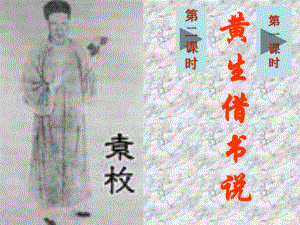 第
课
时
黄生借书说
第
课
时
袁枚